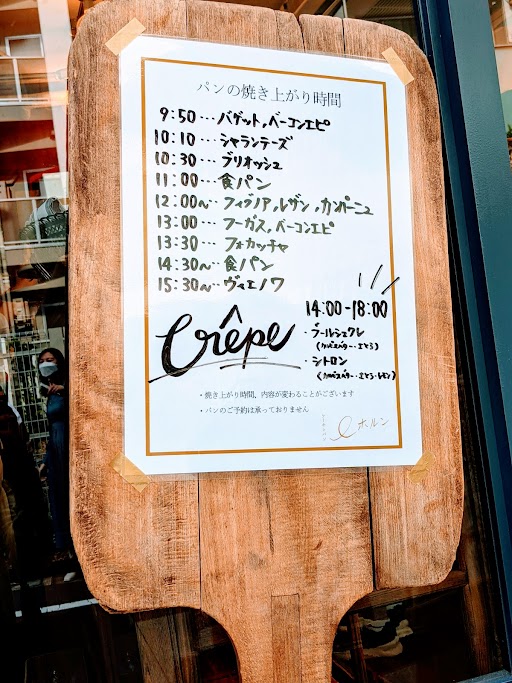 パンの焼き上がり時間
9:50…バゲット,ベーコンエピ
10:10…シャランテーズ
10:30…ブリオッシュ
11:00…食パン
12:00〜…フィグノア,レザン,カンパーニュ
13:00…フーガス,ベーコンエピ
13:30…フォカッチャ
14:30〜…食パン
15:30〜…ヴィエノワ
Crêpe
14:00-18:00
・ブールシュクレ
・シトロン
・焼き上がり時間、内容が変わることがございます
・パンのご予約は承っておりません
ホルン